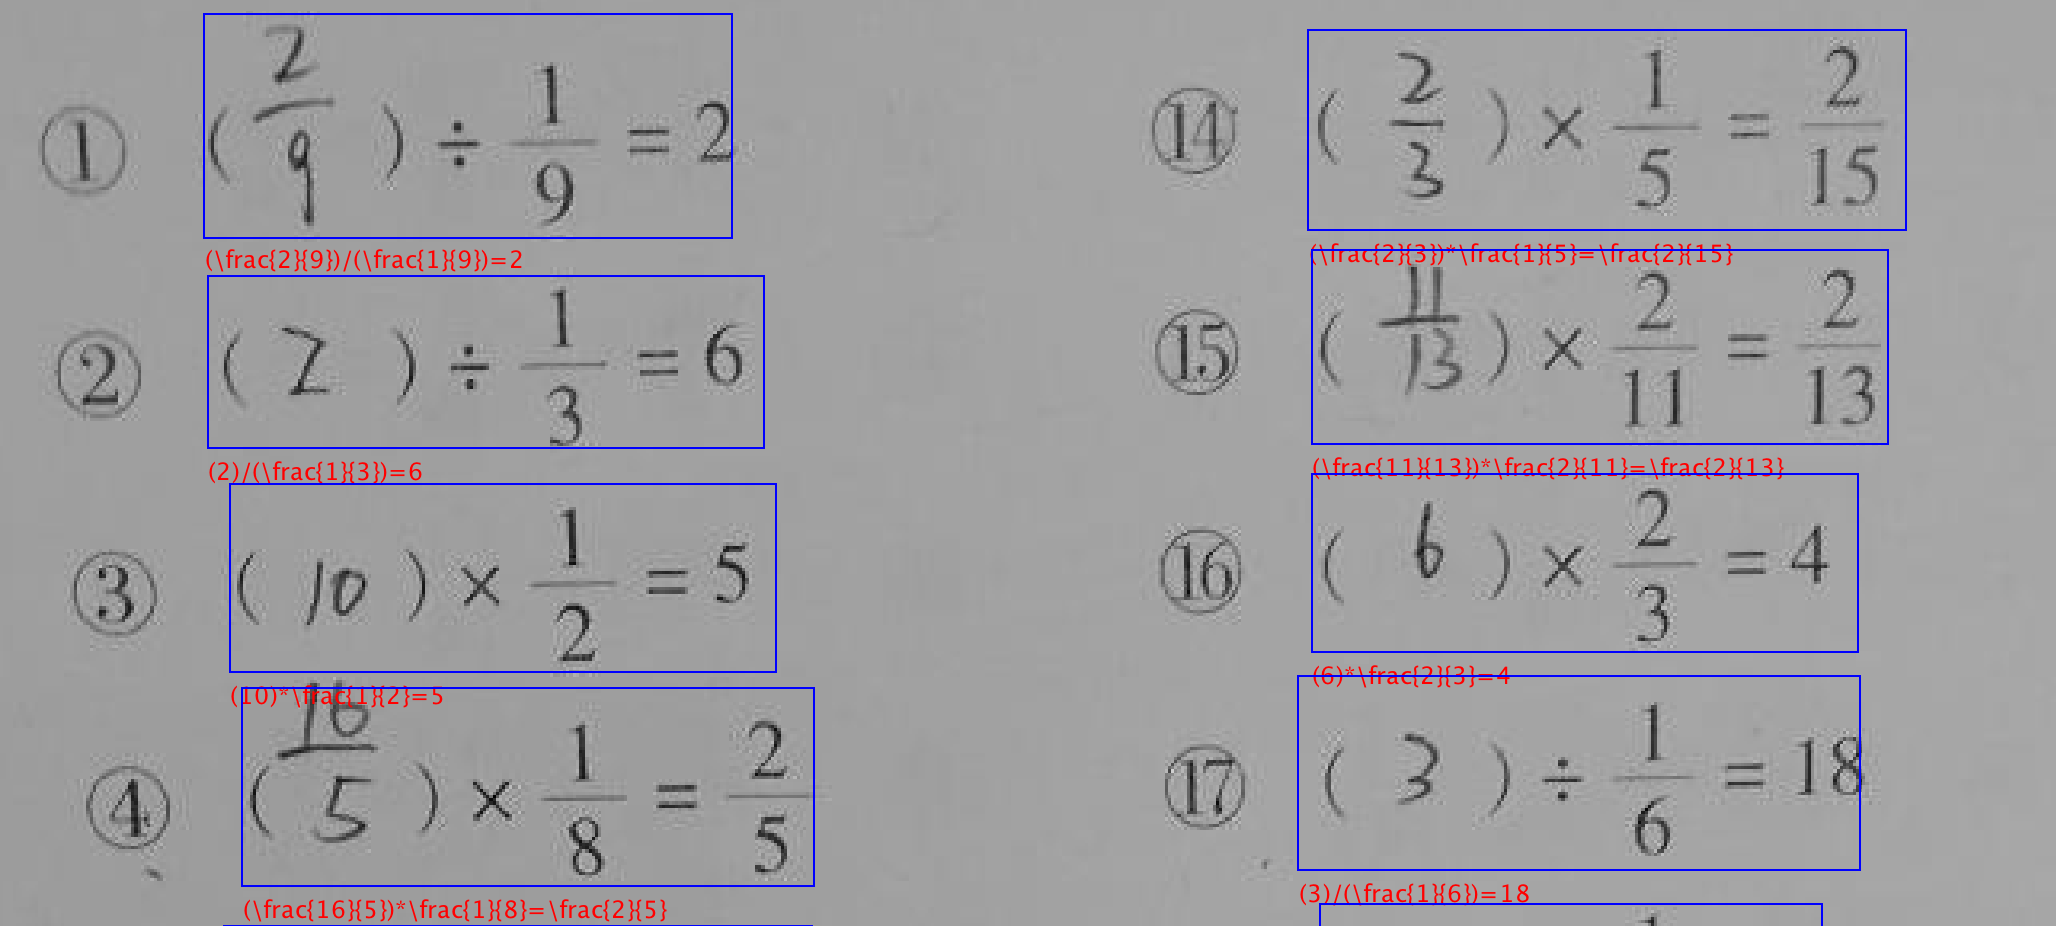 ① ( \frac{2}{9} ) ÷ \frac{1}{9} = 2
(\frac{2}{9})/(\frac{1}{9})=2
② ( 2 ) ÷ \frac{1}{3} = 6
(2)/(\frac{1}{3})=6
③ ( 10 ) × \frac{1}{2} = 5
(10)*\frac{1}{2}=5
④ ( \frac{16}{5} ) × \frac{1}{8} = \frac{2}{5}
(\frac{16}{5})*\frac{1}{8}=\frac{2}{5}
⑭ ( \frac{2}{3} ) × \frac{1}{5} = \frac{2}{15}
(\frac{2}{3})*\frac{1}{5}=\frac{2}{15}
⑮ ( \frac{11}{13} ) × \frac{2}{11} = \frac{2}{13}
(\frac{11}{13})*\frac{2}{11}=\frac{2}{13}
⑯ ( 6 ) × \frac{2}{3} = 4
(6)*\frac{2}{3}=4
⑰ ( 3 ) ÷ \frac{1}{6} = 18
(3)/(\frac{1}{6})=18